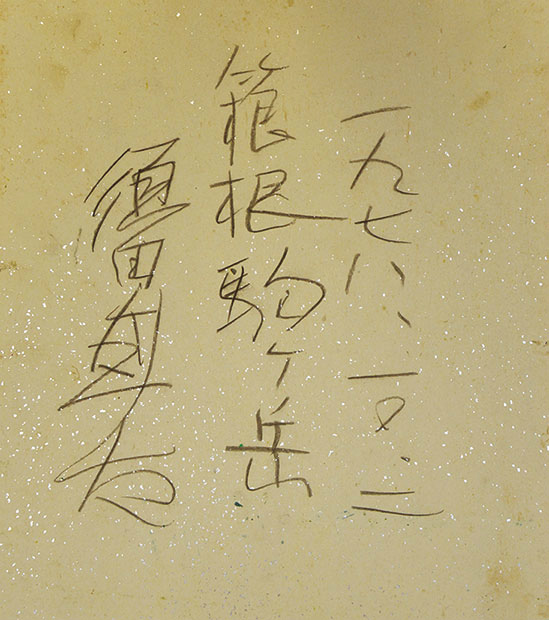 一九七八、一〇.二
箱根駒ケ岳
須田